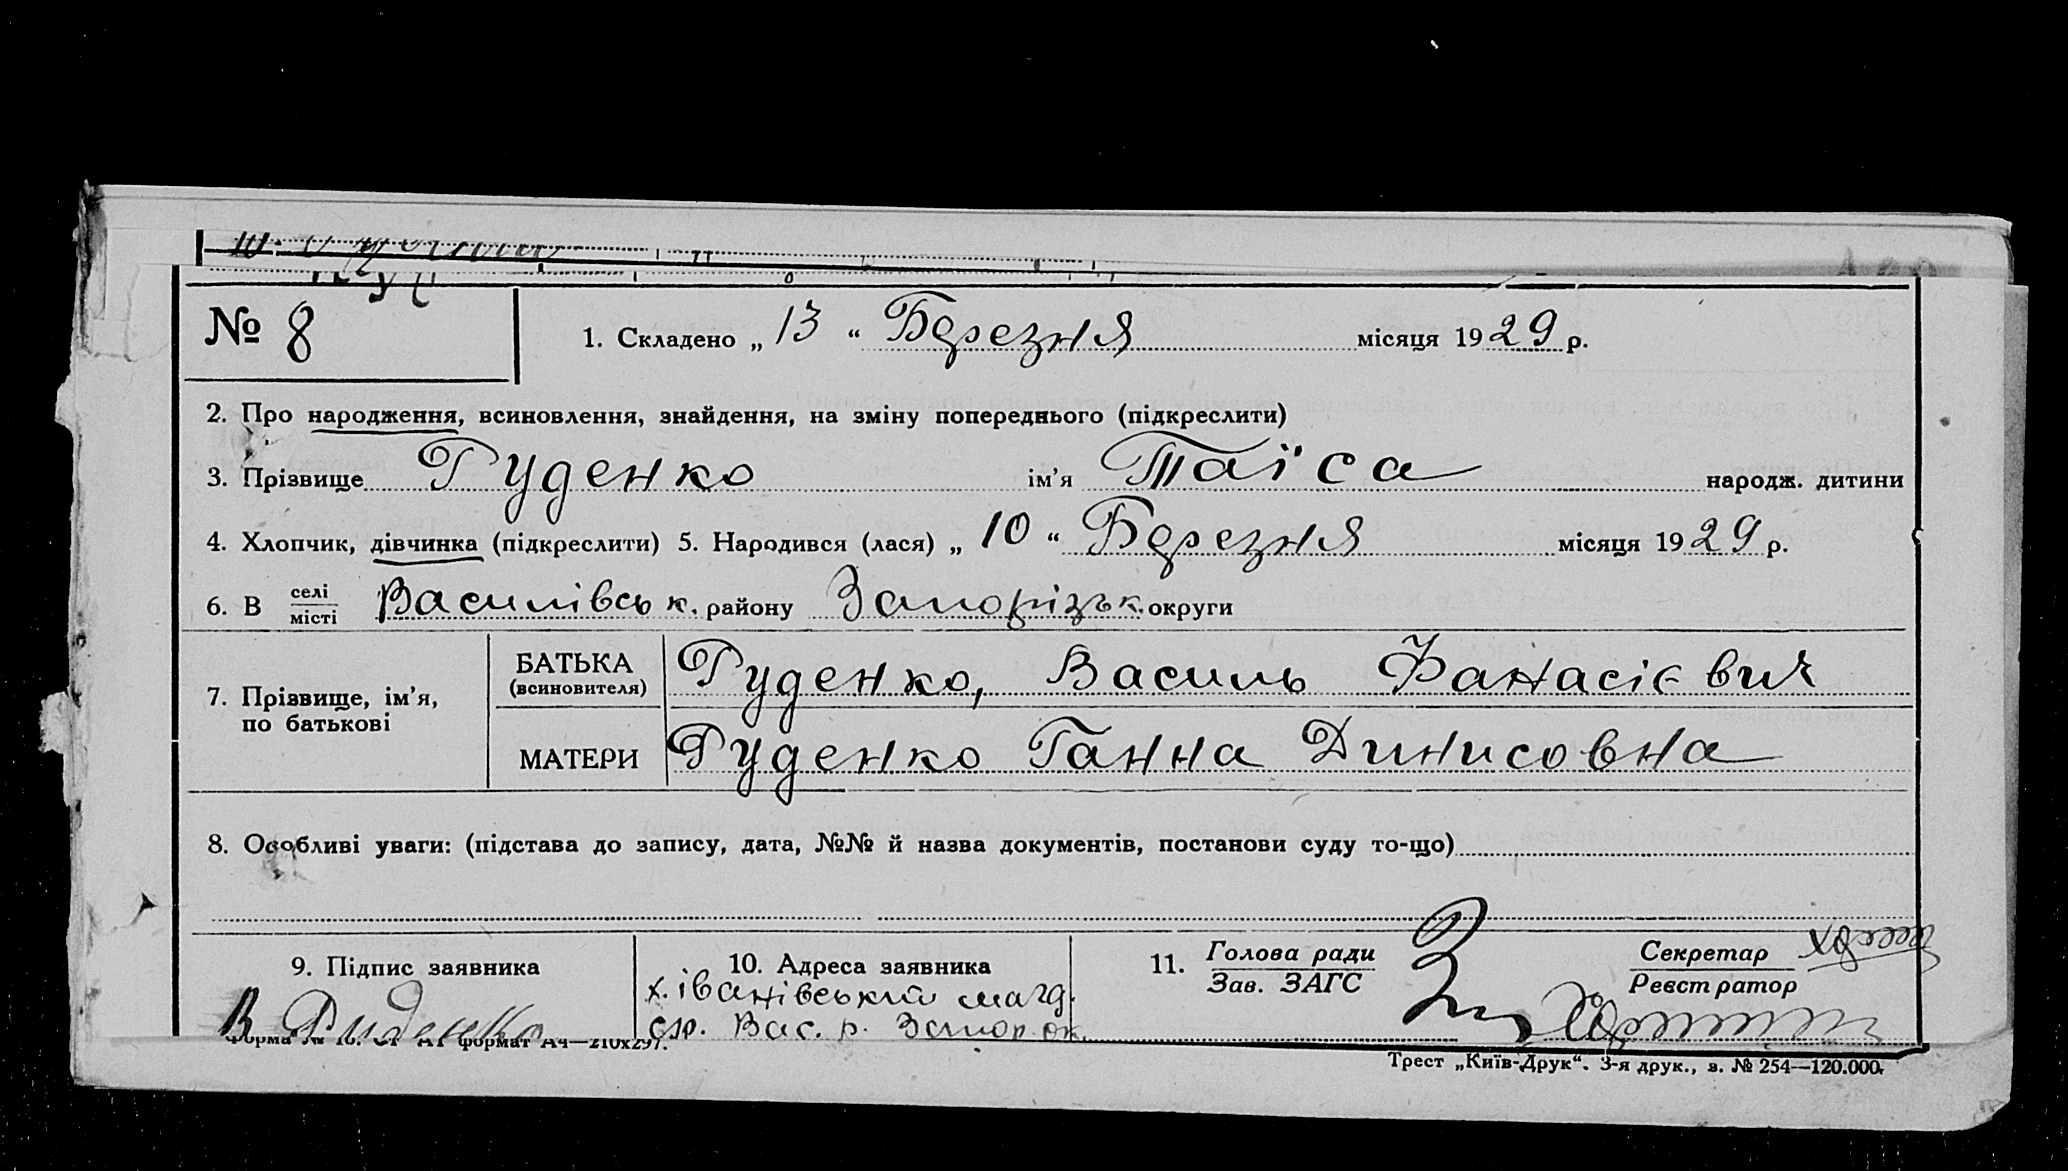 № 8
1. Складено „ 13 “ Березня місяця 1929 р.
2. Про народження, всиновлення, знайдення, на зміну попереднього (підкреслити)
3. Прізвище Руденко ім'я Таїса народж. дитини
4. Хлопчик, дівчинка (підкреслити) 5. Народився (лася) „ 10 “ Березня місяця 1929 р.
6. В селі місті Василівськ. району Запорізьк. округи
7. Прізвище, ім'я, по батькові
БАТЬКА (всиновителя) Руденко, Василь Фанасієвич
МАТЕРИ Руденко Ганна Динисовна
8. Особливі уваги: (підстава до запису, дата, №№ й назва документів, постанови суду то-що)
9. Підпис заявника
В Руденко
10. Адреса заявника
х. Іванівський магд.
с/р. Вас. р. Запор ок.
11. Голова ради
Зав. ЗАГС
Секретар
Реєстратор
формат А4—210х297.
Трест „Київ-Друк“. 3-я друк., з. № 254—120.000.